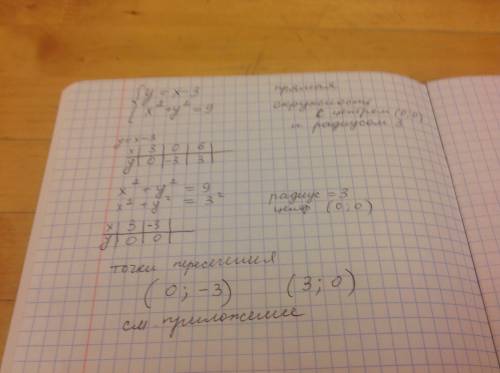 { y = x - 3 прямая
x² + y² = 9 окружность с центром (0;0) и радиусом 3
y = x - 3
x | 3 | 0 | 6
y | 0 | -3 | 3
x² + y² = 9
x² + y² = 3² радиус = 3 центр (0;0)
x | 3 | -3 |
y | 0 | 0 |
точки пересечения
(0; -3) (3; 0)
см приложение